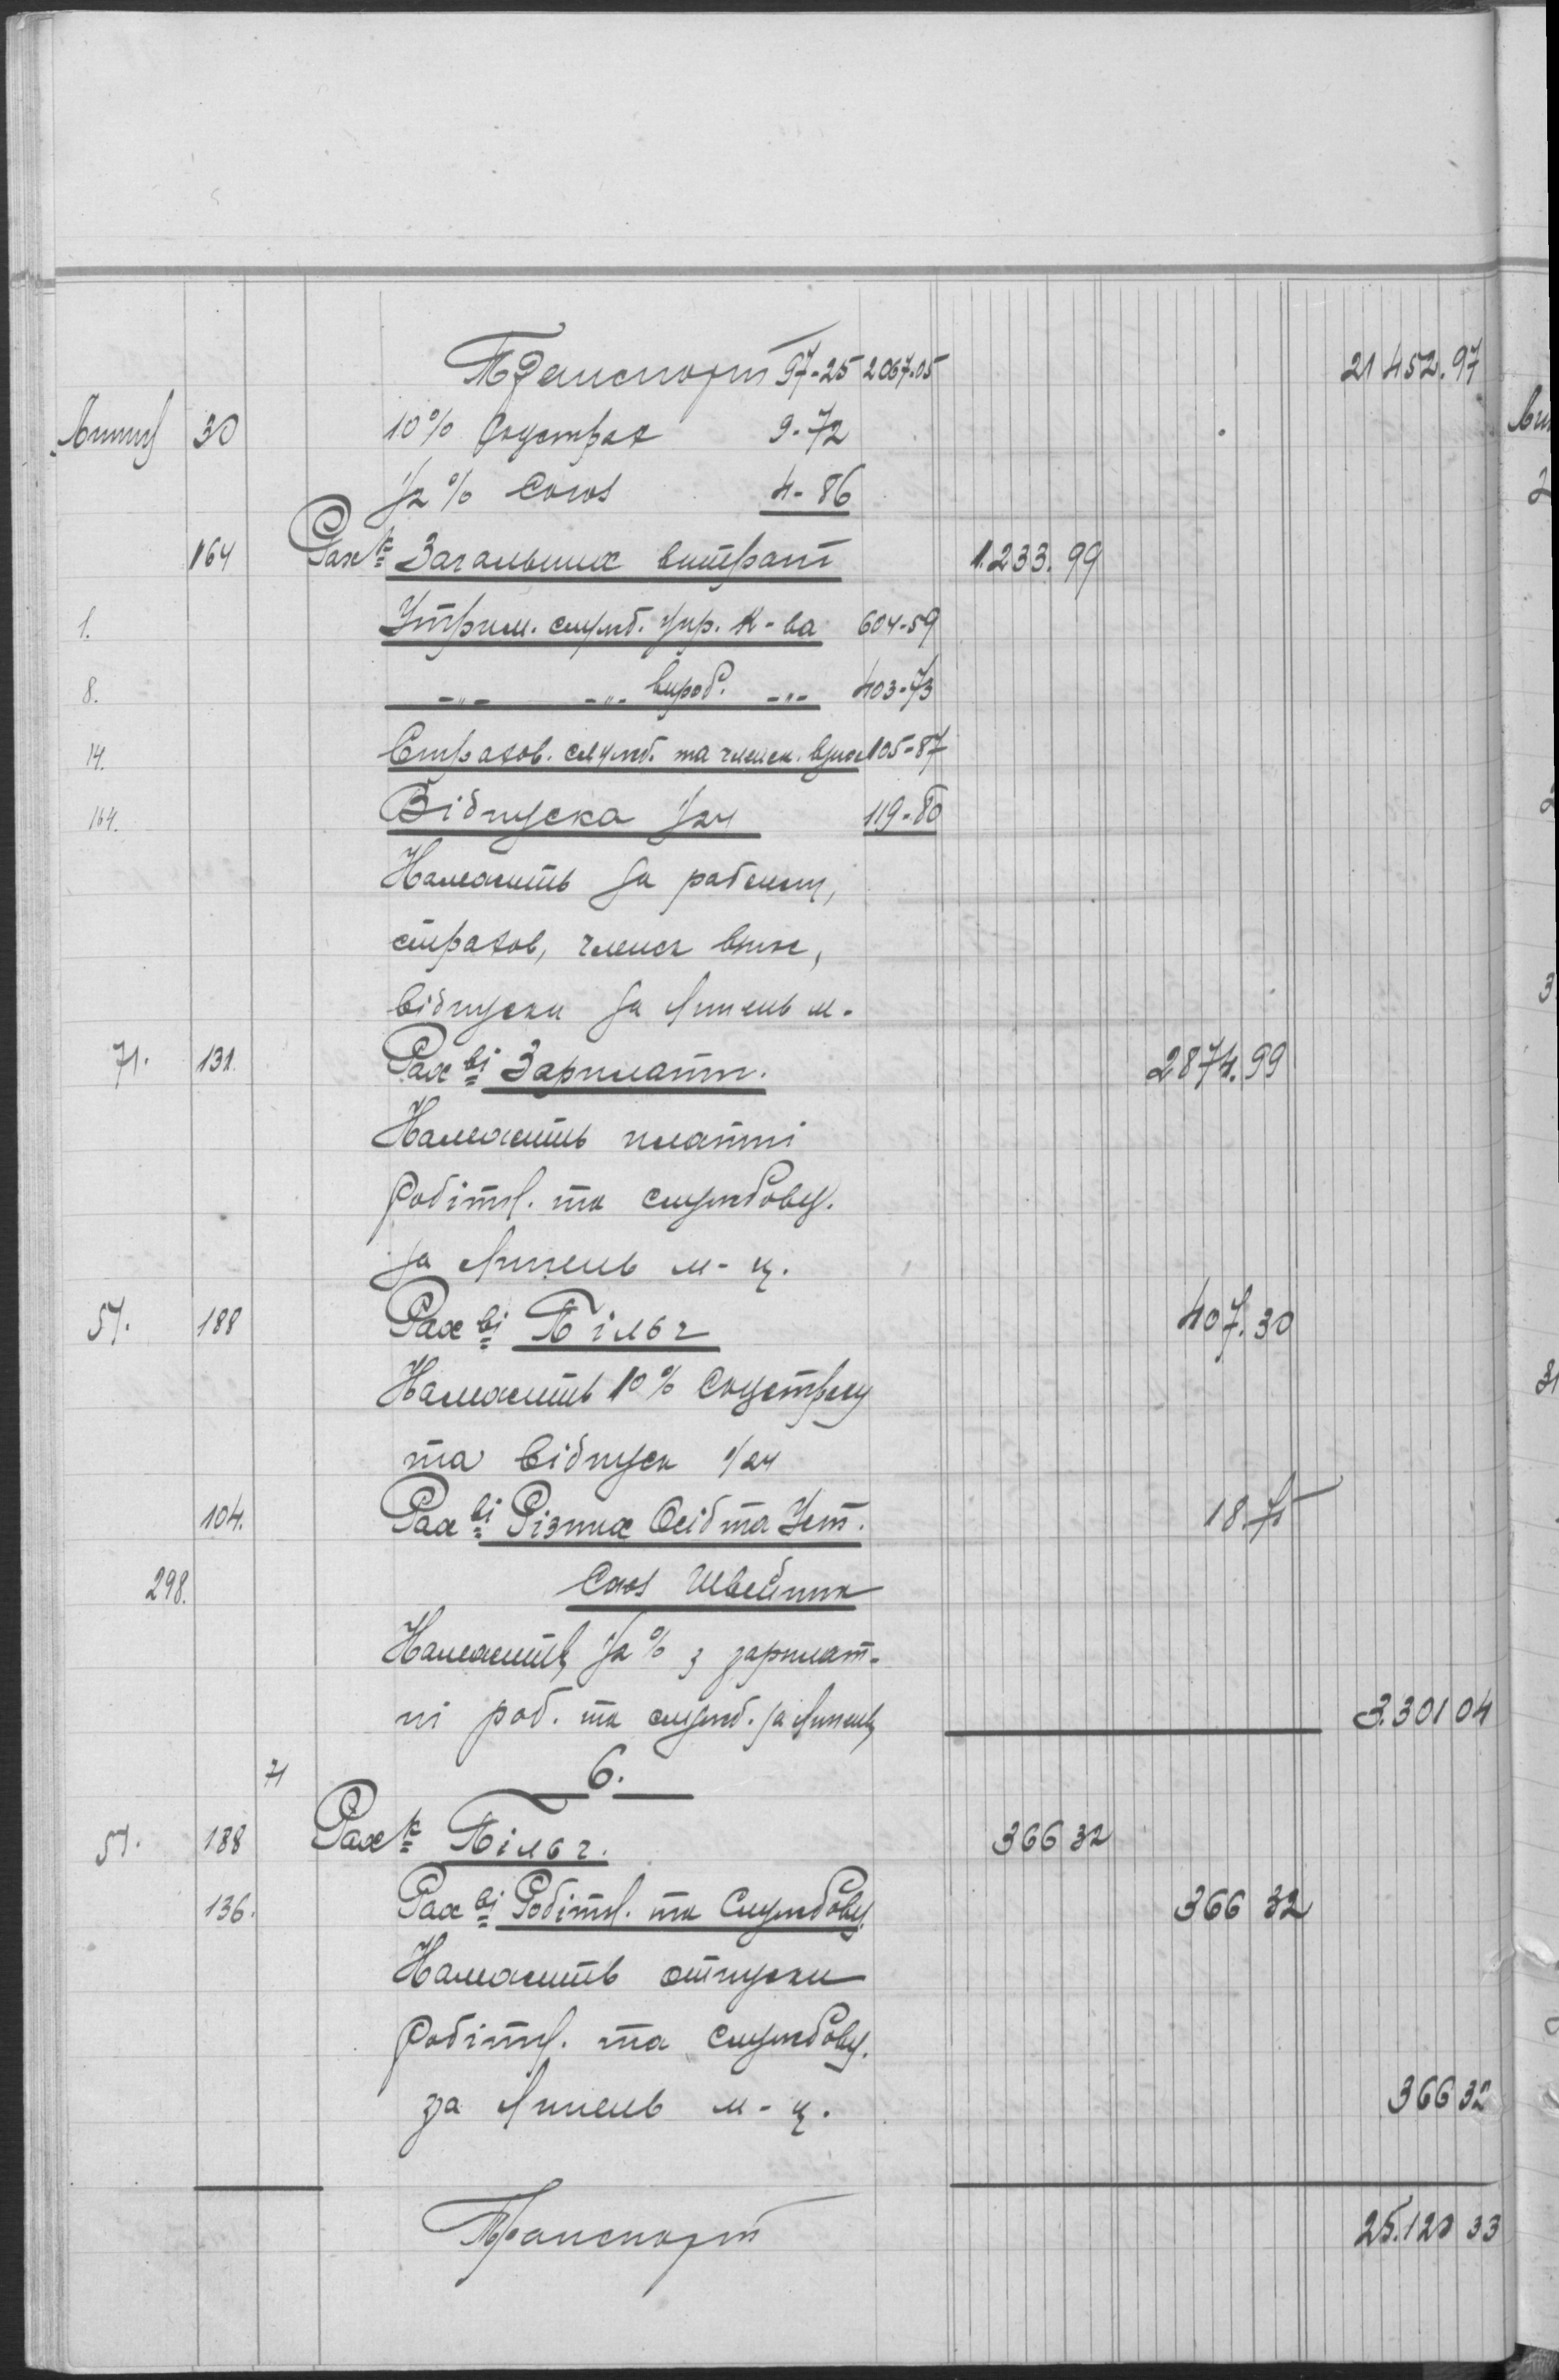 Транспорт 97-25 2067.05 21 452.97
Липец 30 10% Соцстрах 9-72
1/2% Союз 4-86
164 Рах-к Загальних витрат 1.233.99
1. Утрим. служб. упр. К-ва 604-59
8. -„- -„- вироб. -„- 403-73
14. Страхов. служб. та членск. внос 105-87
164. Відпуска 1/24 119-80
Належить за
страхов, членск внос,
відпуски за Липень м-
71. 131. Рах-ві Зарплати. 2874.99
Належить платні
Робітн. та службовц.
за Липень м-ц.
51. 188 Рах-ві Пільг 407.30
Належить 10% Соцстраху
та Відпуск 1/24
104. Рах-ві Різних Осіб та Уст. 18.75
298. Союз Швейник
Належить 1/2% з зарплат-
ні роб. та служб. за Липень 3.301 04
71 6.
51. 188 Рах-к Пільг. 366 32
136. Рах-ві Робітн. та Службовц. 366 32
Належить отпуски
Робітн. та службовц.
за Липень м-ц. 366 32
Транспорт 25.120 33